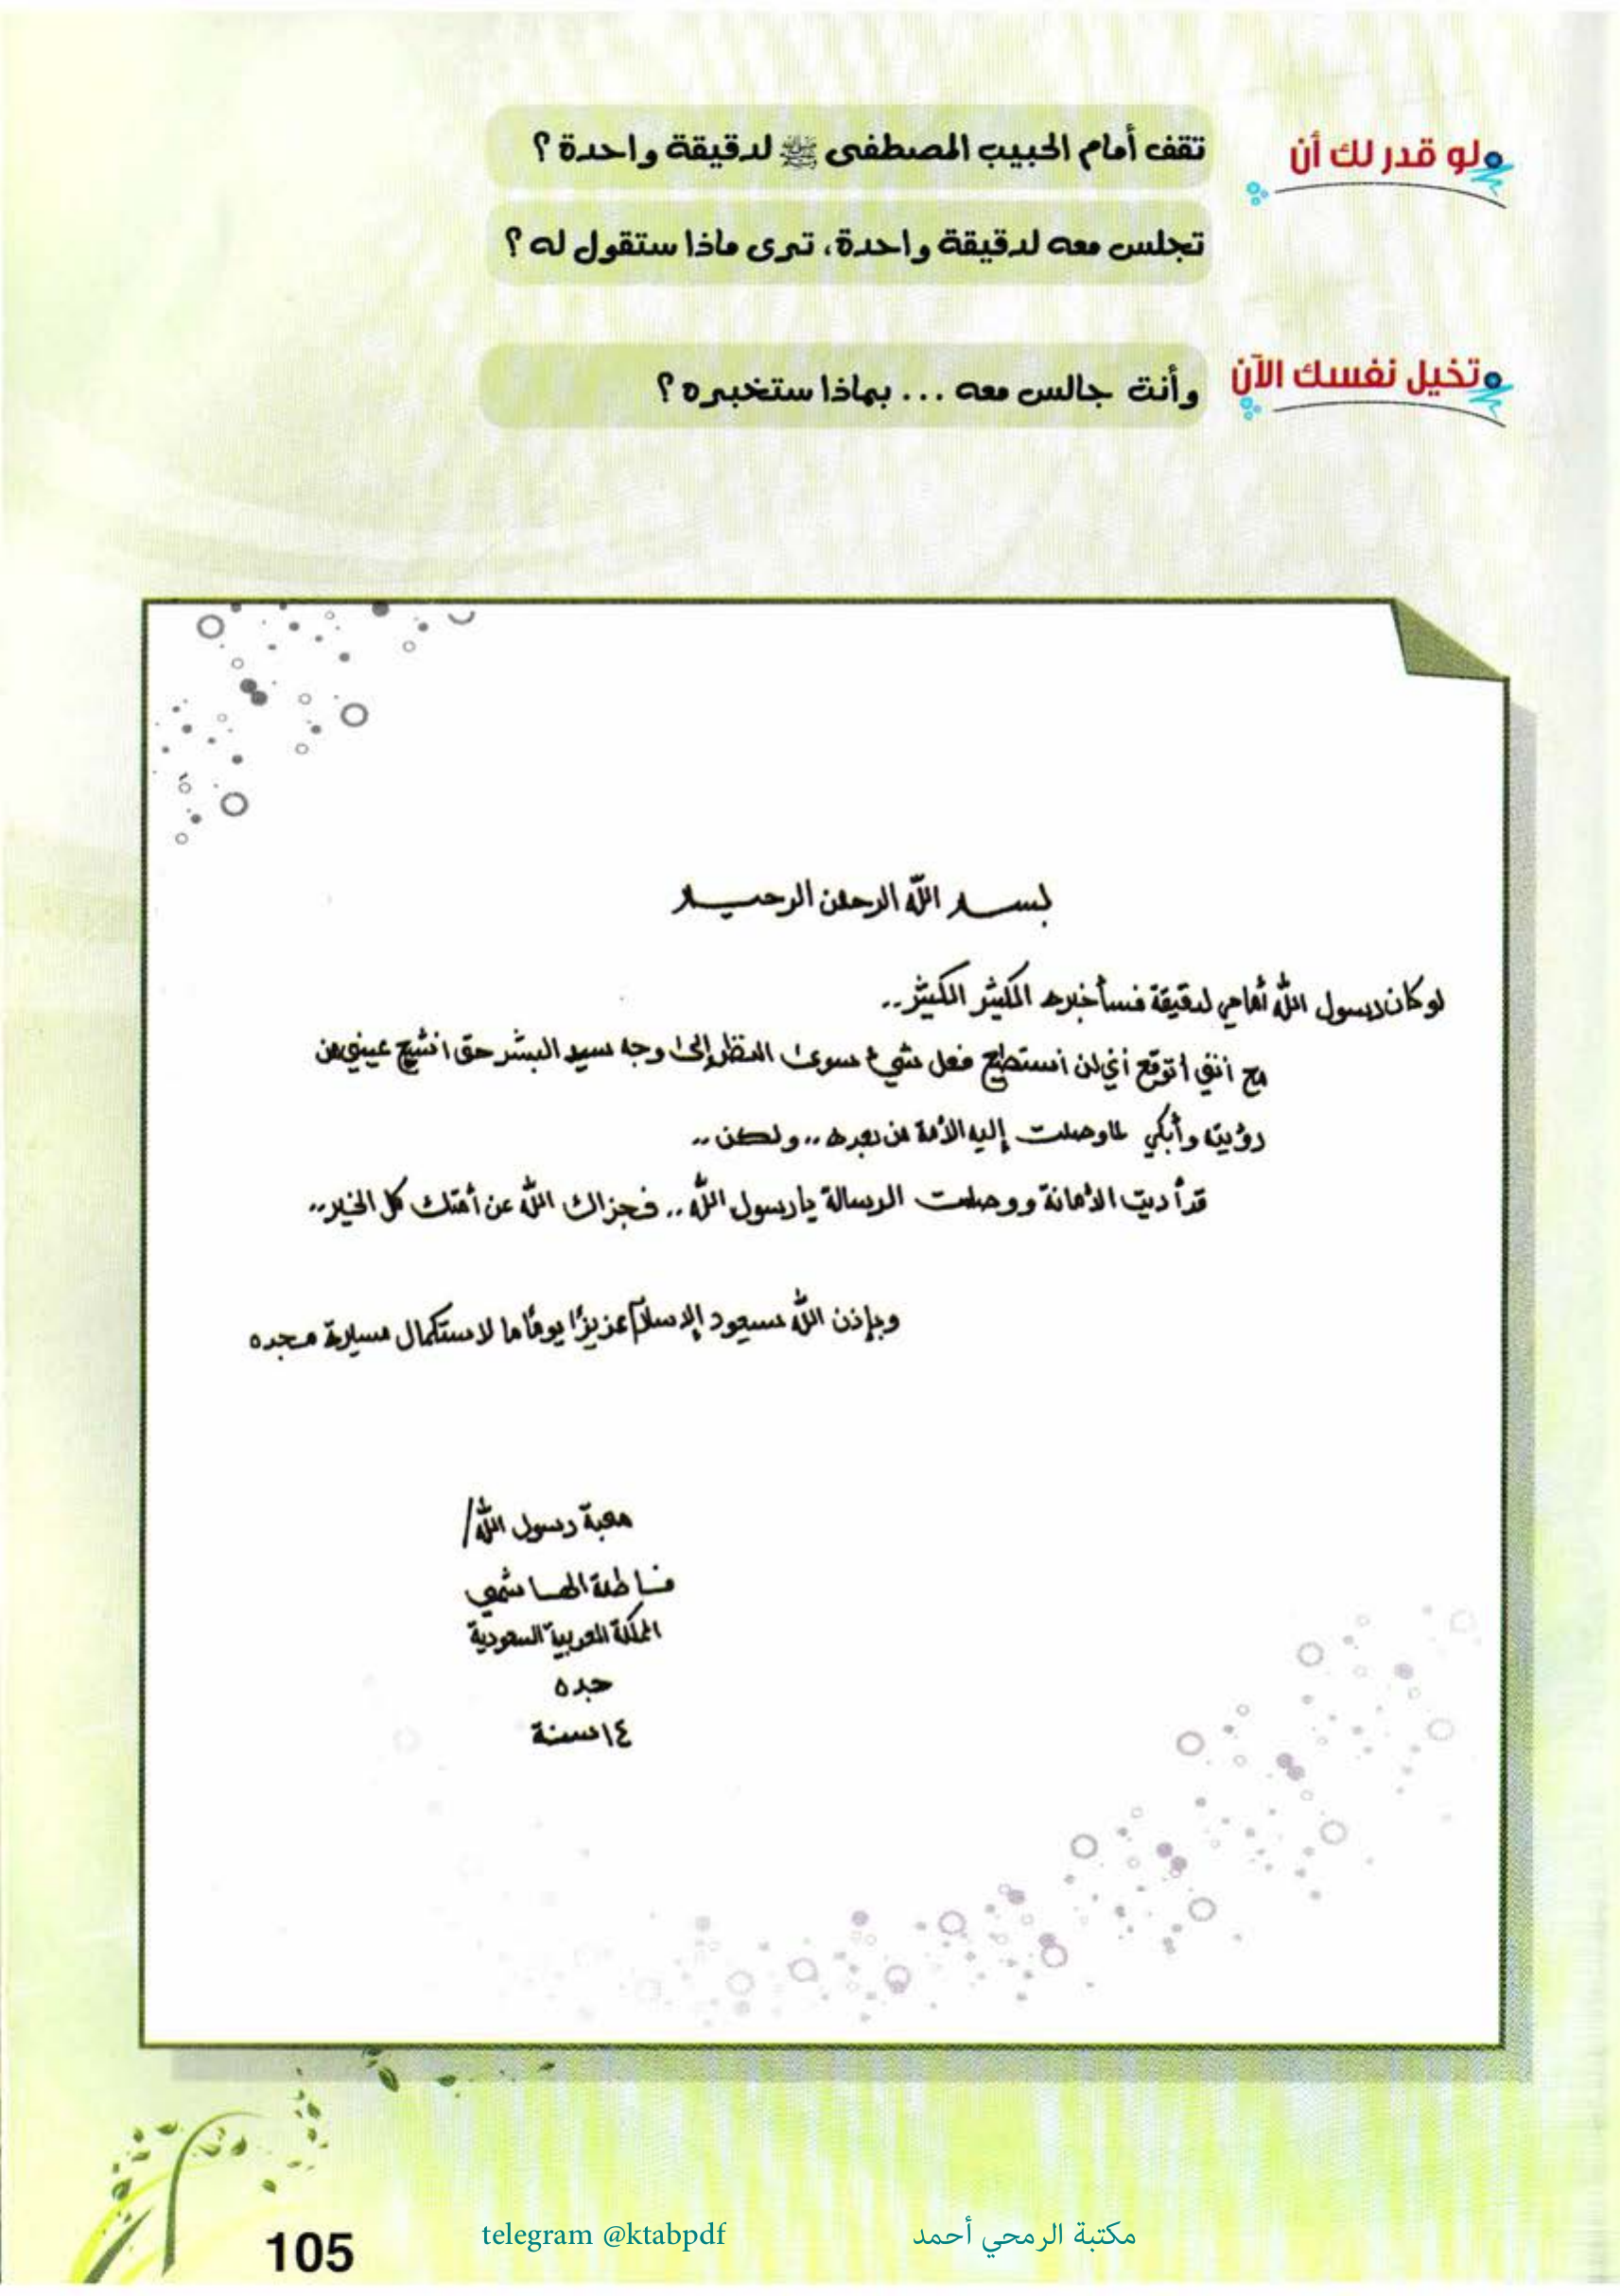 لو قدر لك أن
تقف أمام الحبيب المصطفى ﷺ لدقيقة واحدة ؟
تجلس معه لدقيقة واحدة، ترى ماذا ستقول له ؟
تخيل نفسك الآن
وأنت جالس معه ... بماذا ستخبره ؟
بسم الله الرحمن الرحيم
لو كان رسول الله أمامي لدقيقة فسأخبره الكثير الكثير..
مع أنني أتوقع أنني لن أستطيع فعل شيء سوى النظر إلى وجه سيد البشر حتى أشبع عيني من
رؤيته وأبكي لما وصلت إليه الأمة من بعده .. ولكن ..
قد أديت الأمانة ووصلت الرسالة يا رسول الله .. فجزاك الله عن أمتك كل الخير..
وبإذن الله سيعود الإسلام عزيزًا يومًا ما لاستكمال مسيرة مجده
محبة رسول الله/
فاطمة الهاشمي
المملكة العربية السعودية
جده
١٤ سنة
105
telegram @ktabpdf
مكتبة الرمحي أحمد